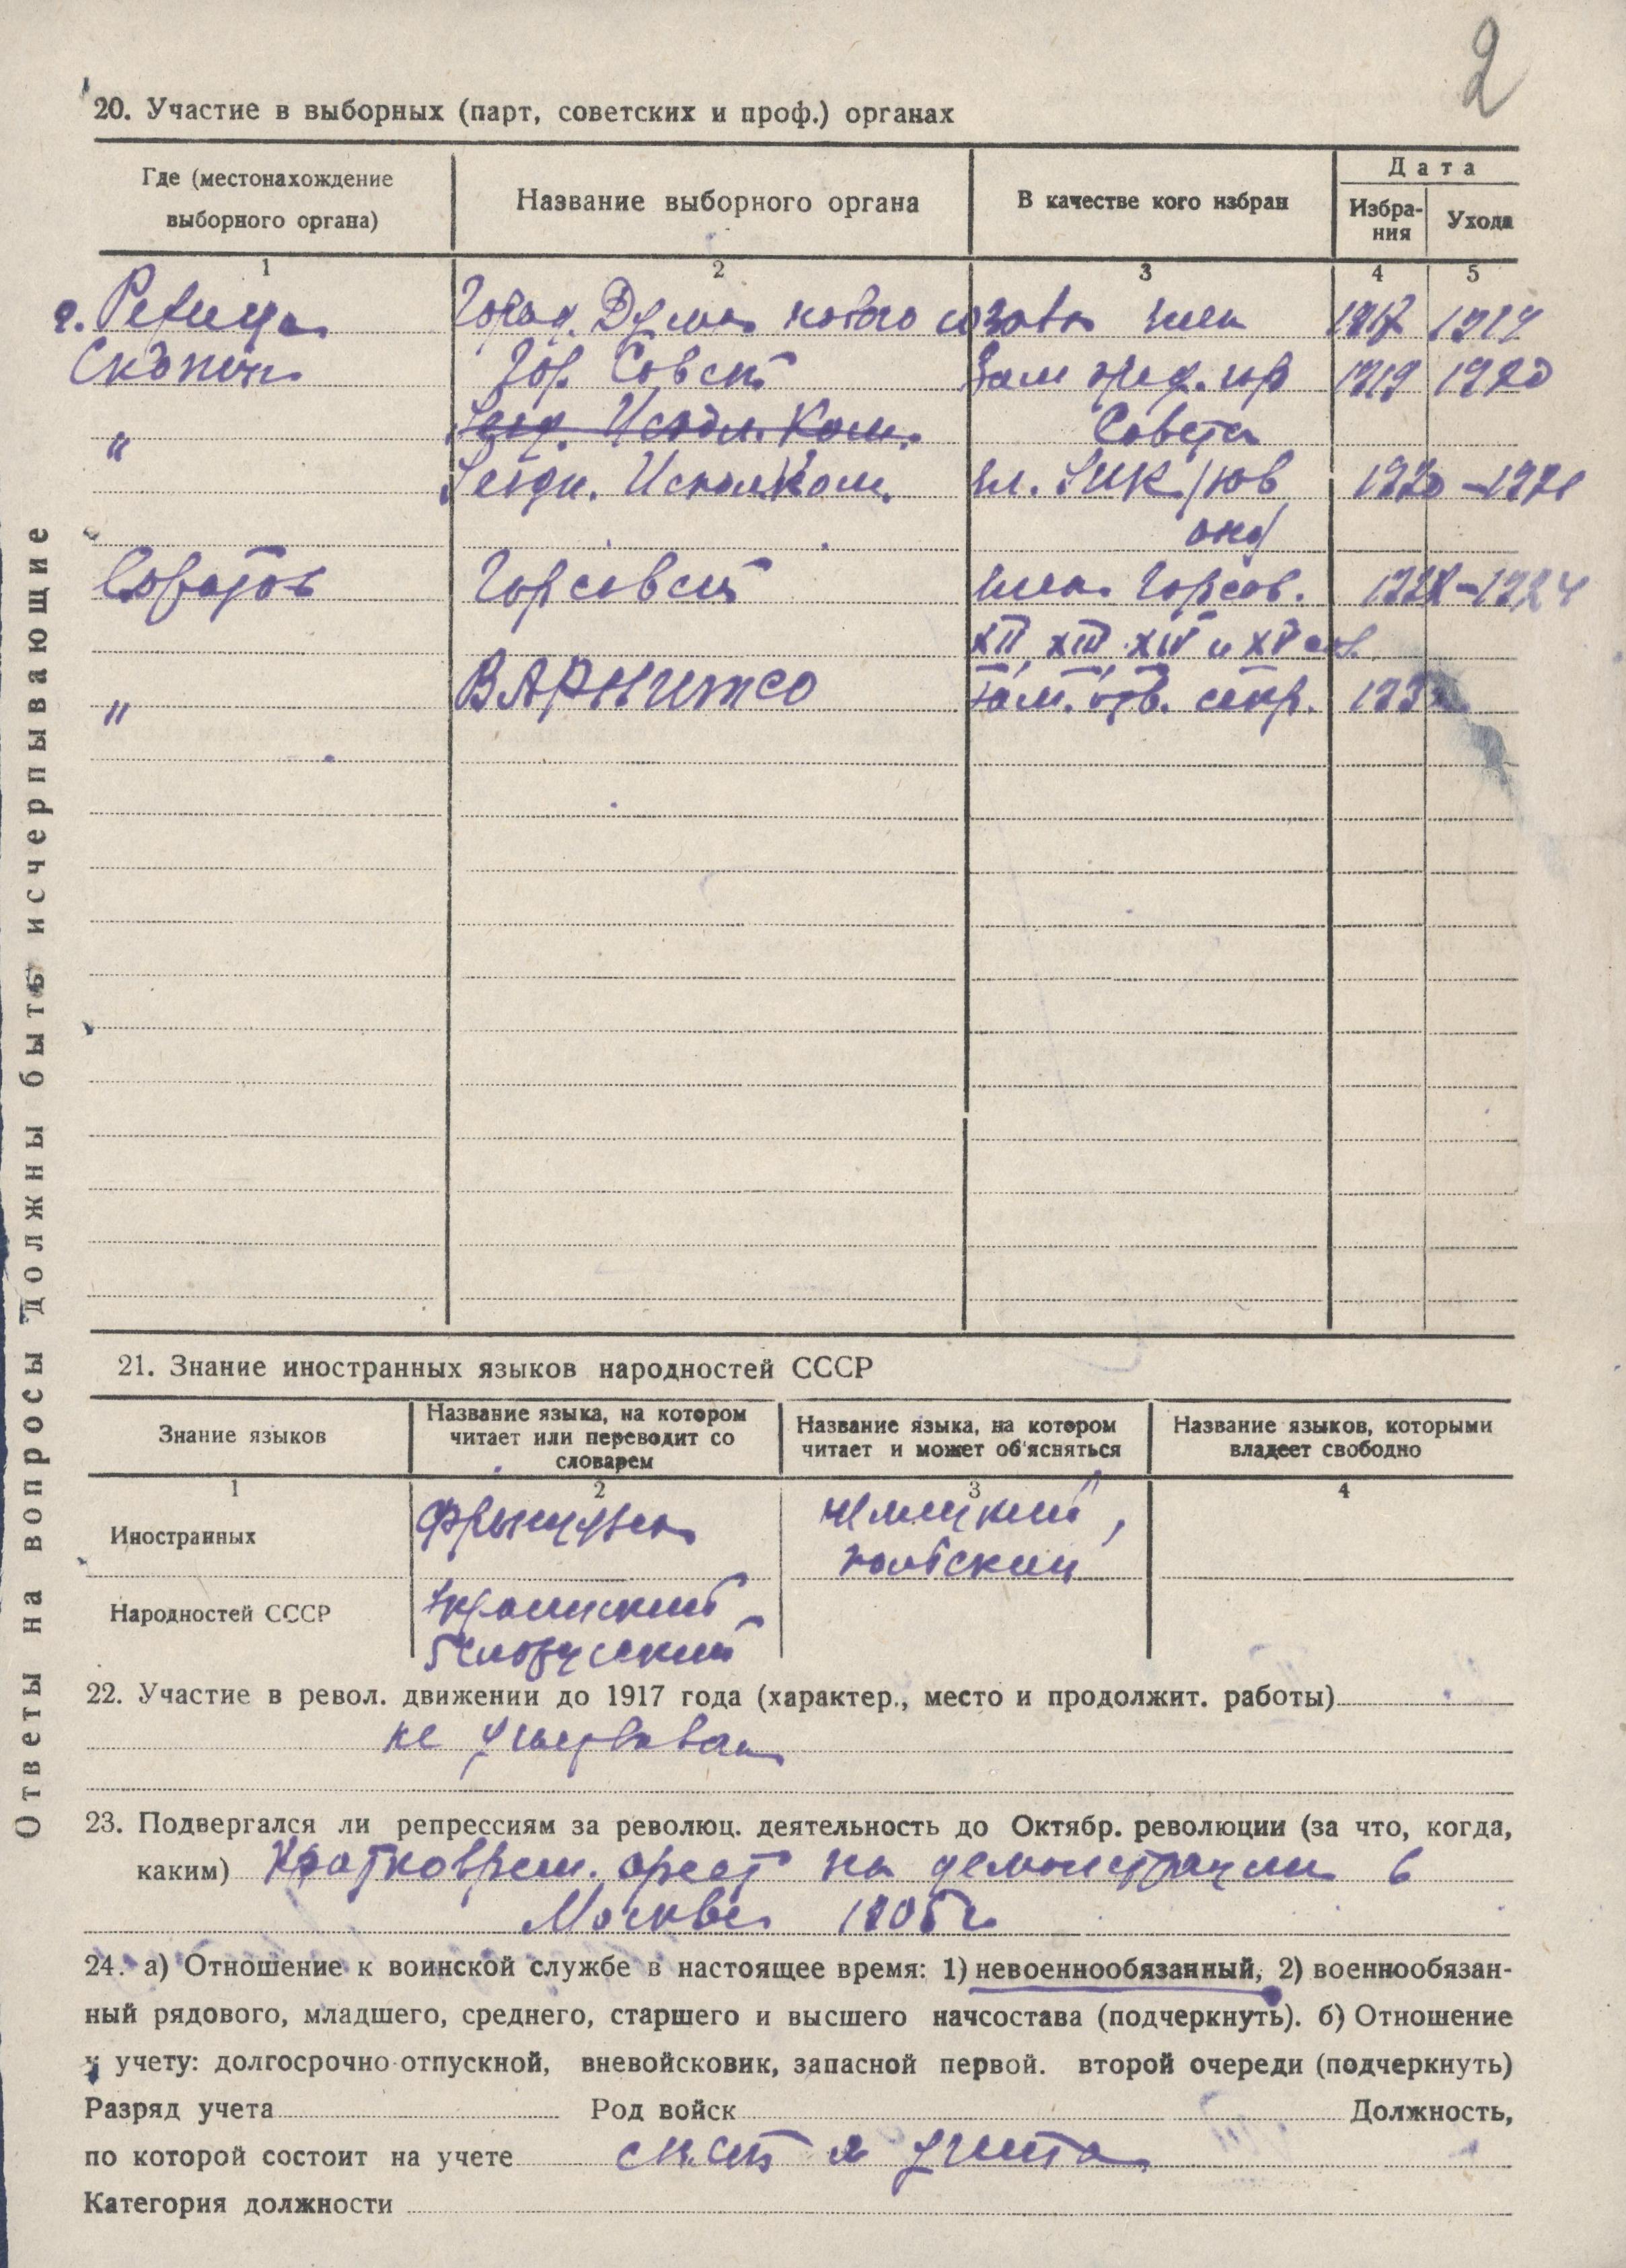 2
20. Участие в выборных (парт, советских и проф.) органах
Где (местонахождение выборного органа)
Название выборного органа
В качестве кого избран
Дата
Избра-
ния
Ухода
1 2 3 4 5
г. Речица Город. Дума нового созыва член 1917 1917
Скопин Гор. Совет Зам пред. гор 1919 1920
" Уезд. Исполн. Ком. Совета
Уездн. ИсполКом. чл. УИК /юв 1920 – 1921
Саратов Горсовет член Горсов.
XII, XIII, XIV и XV соз.
" ВАРНИТСО Зам. отв. секр.
Ответы на вопросы должны быть исчерпывающие
21. Знание иностранных языков народностей СССР
Знание языков
Название языка, на котором
читает или переводит со
словарем
Название языка, на котором
читает и может об'ясняться
Название языков, которыми
владеет свободно
1 2 3 4
Иностранных
немецкий,
польский
Народностей СССР украинский
белорусский
22. Участие в револ. движении до 1917 года (характер., место и продолжит. работы)
не участвовал
23. Подвергался ли репрессиям за революц. деятельность до Октябр. революции (за что, когда,
каким) Кратковрем. арест на демонстрации в
Москве 1905 г.
24. а) Отношение к воинской службе в настоящее время: 1) невоеннообязанный, 2) военнообязан-
ный рядового, младшего, среднего, старшего и высшего начсостава (подчеркнуть). б) Отношение
к учету: долгосрочно-отпускной, вневойсковик, запасной первой. второй очереди (подчеркнуть)
Разряд учета Род войск Должность,
по которой состоит на учете снят с учета
Категория должности